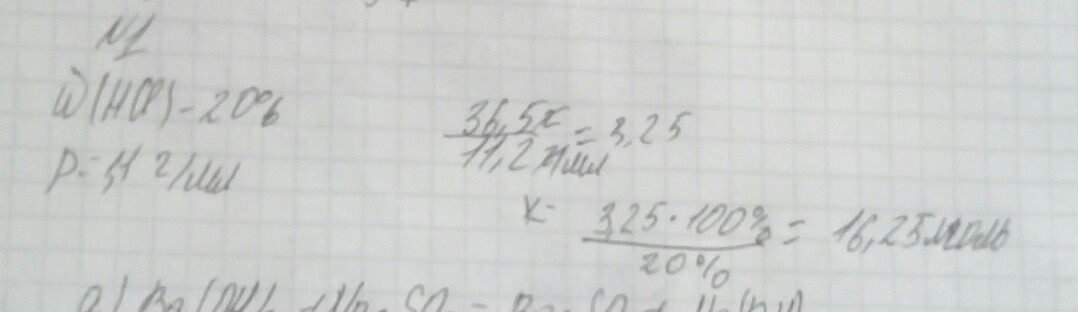 N1
ω(HCl) - 20%
ρ = 1,1 г/мл
36,5x / 11,2 г/мл = 3,25
x = 3,25 · 100% / 20% = 16,25 моль
a) Ba(OH)₂ +